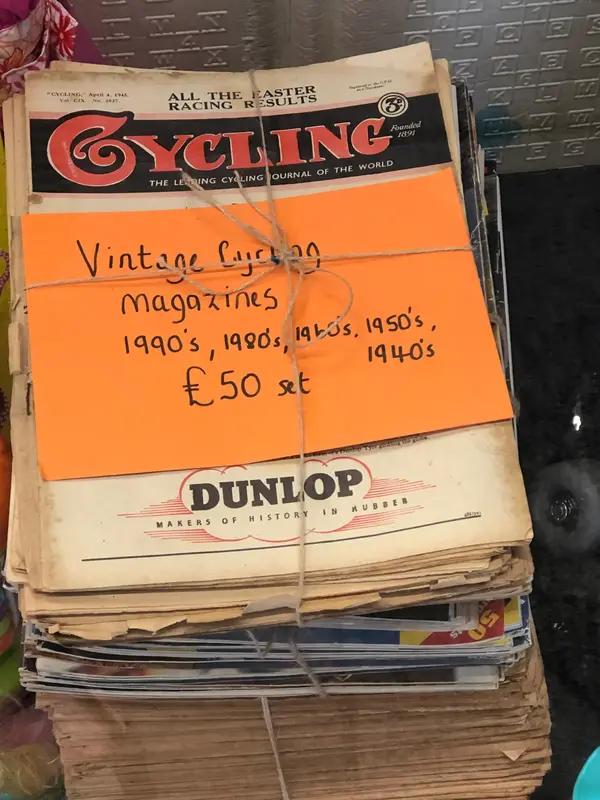 "CYCLING," April 4, 1945.
Vol. CIX. No. 2827.
ALL THE EASTER
RACING RESULTS
CYCLING
3D
Founded
1891
THE LEADING CYCLING JOURNAL OF THE WORLD
Vintage Cycling
magazines
1990's, 1980's, 1960's, 1950's,
1940's
£50 set
DUNLOP
MAKERS OF HISTORY IN RUBBER
50